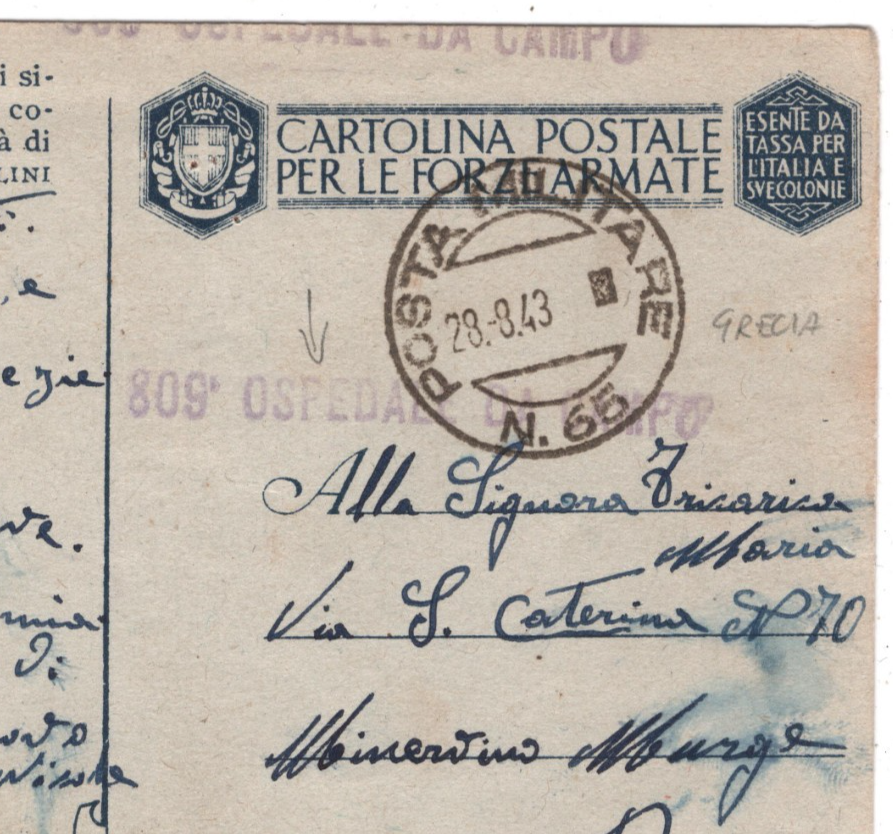 809° OSPEDALE DA CAMPO
i si-
co-
à di
LINI
e
e zie
ve.
CARTOLINA POSTALE
PER LE FORZE ARMATE
ESENTE DA
TASSA PER
L'ITALIA E
SVE COLONIE
POSTA MILITARE
28.-8.43
N. 65
GRECIA
809° OSPEDALE DA CAMPO
Alla Signora Tricarico
Maria
Via S. Caterina N° 70
Minervino Murge